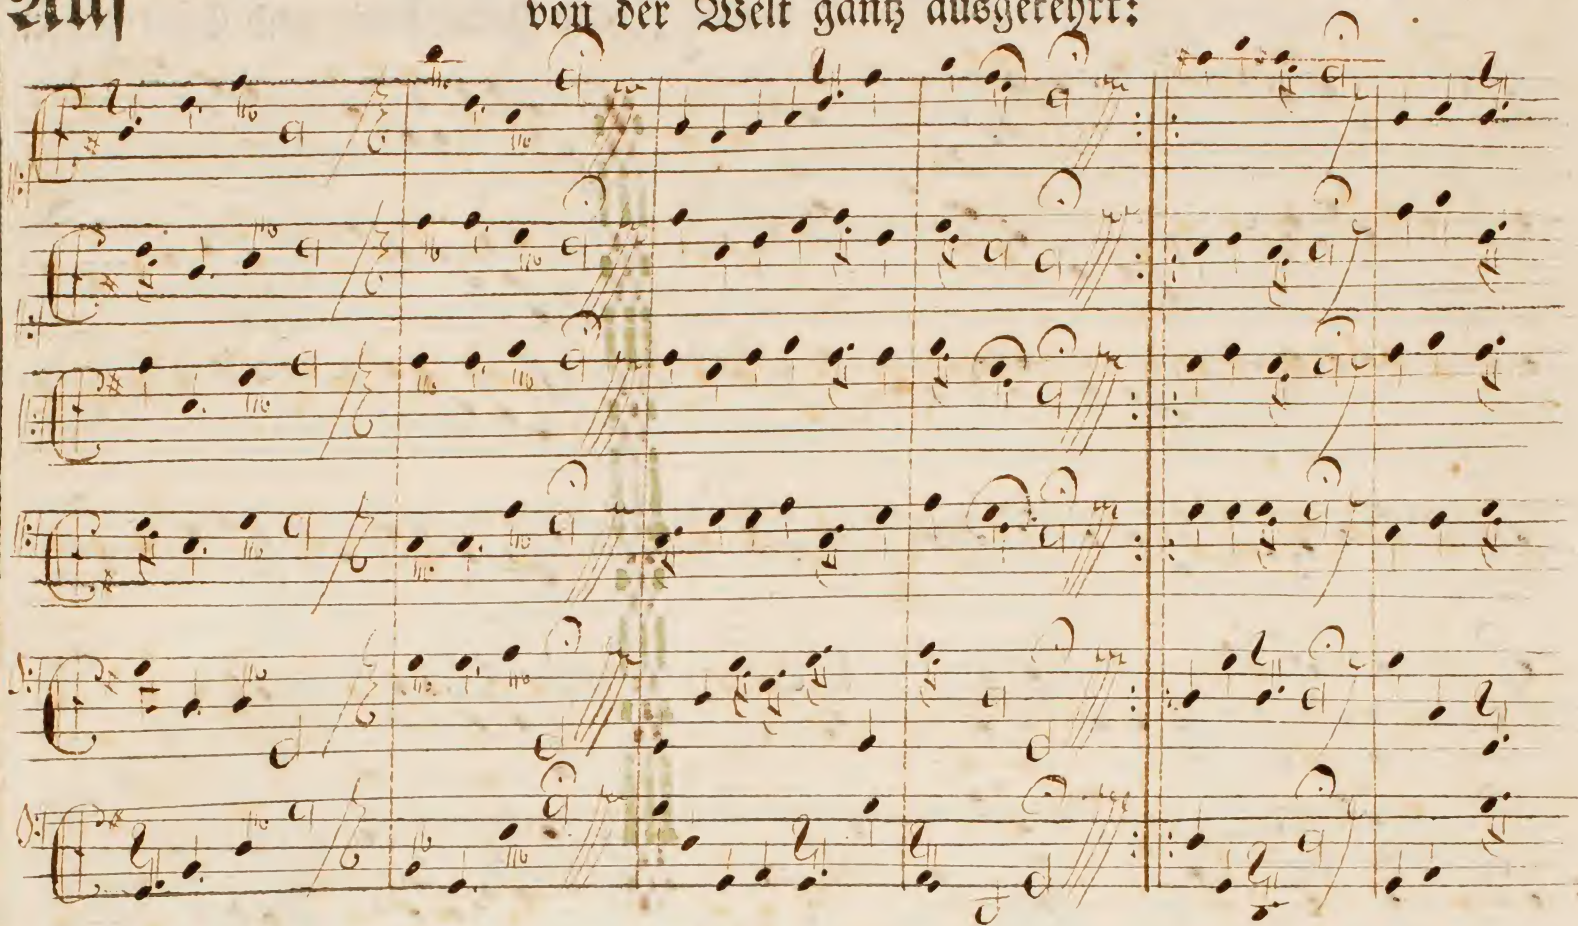 Auf von der Welt gantz ausgekehrt: